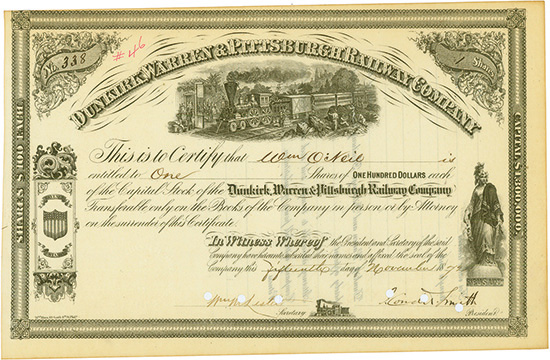 No. 338
#46
1 Shares
DUNKIRK, WARREN & PITTSBURGH RAILWAY COMPANY
SHARES $100 EACH
This is to Certify that Wm O'Neil is
entitled to One Shares of ONE HUNDRED DOLLARS each
of the Capital Stock of the Dunkirk, Warren & Pittsburgh Railway Company
Transferable only on the Books of the Company in person, or by Attorney
on the surrender of this Certificate.
In Witness Whereof the President and Secretary of the said
Company have hereunto subscribed their names and affixed the seal of the
Company this fifteenth day of November 187
Secretary
Smith
President